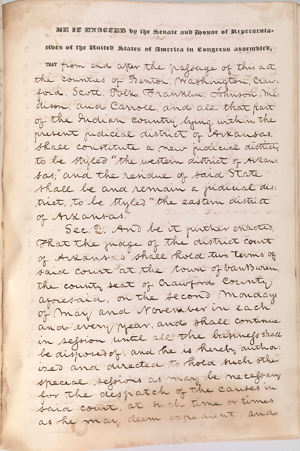 BE IT ENACTED by the Senate and House of Representa-
tives of the United States of America in Congress assembled,
THAT from end after the passage of this act
the counties of Benton, Washington, Craw-
ford Scott Polk, Franklin, Johnson, Ma-
dison, and Carroll, and all that part
of the Indian country lying within the
present judicial district of Arkansas,
shall constitute a new judicial district,
to be styled "the western district of Arkan-
sas," and the residue of said State
shall be and remain a judicial dis-
trict, to be styled "the eastern district
of Arkansas."
Sec. 2. And be it further enacted,
That the judge of the district court
of Arkansas shall hold two terms of
said court at the town of VanBuren,
the county seat of Crawford County
aforesaid, on the second Mondays
of May and November in each
and every year, and shall continue
in session until all the business shall
be disposed of; and he is hereby author-
ized and directed to hold such other
special sessions as may be necessary
for the despatch of the causes in
said court, at such time or times
as he may deem expedient, and